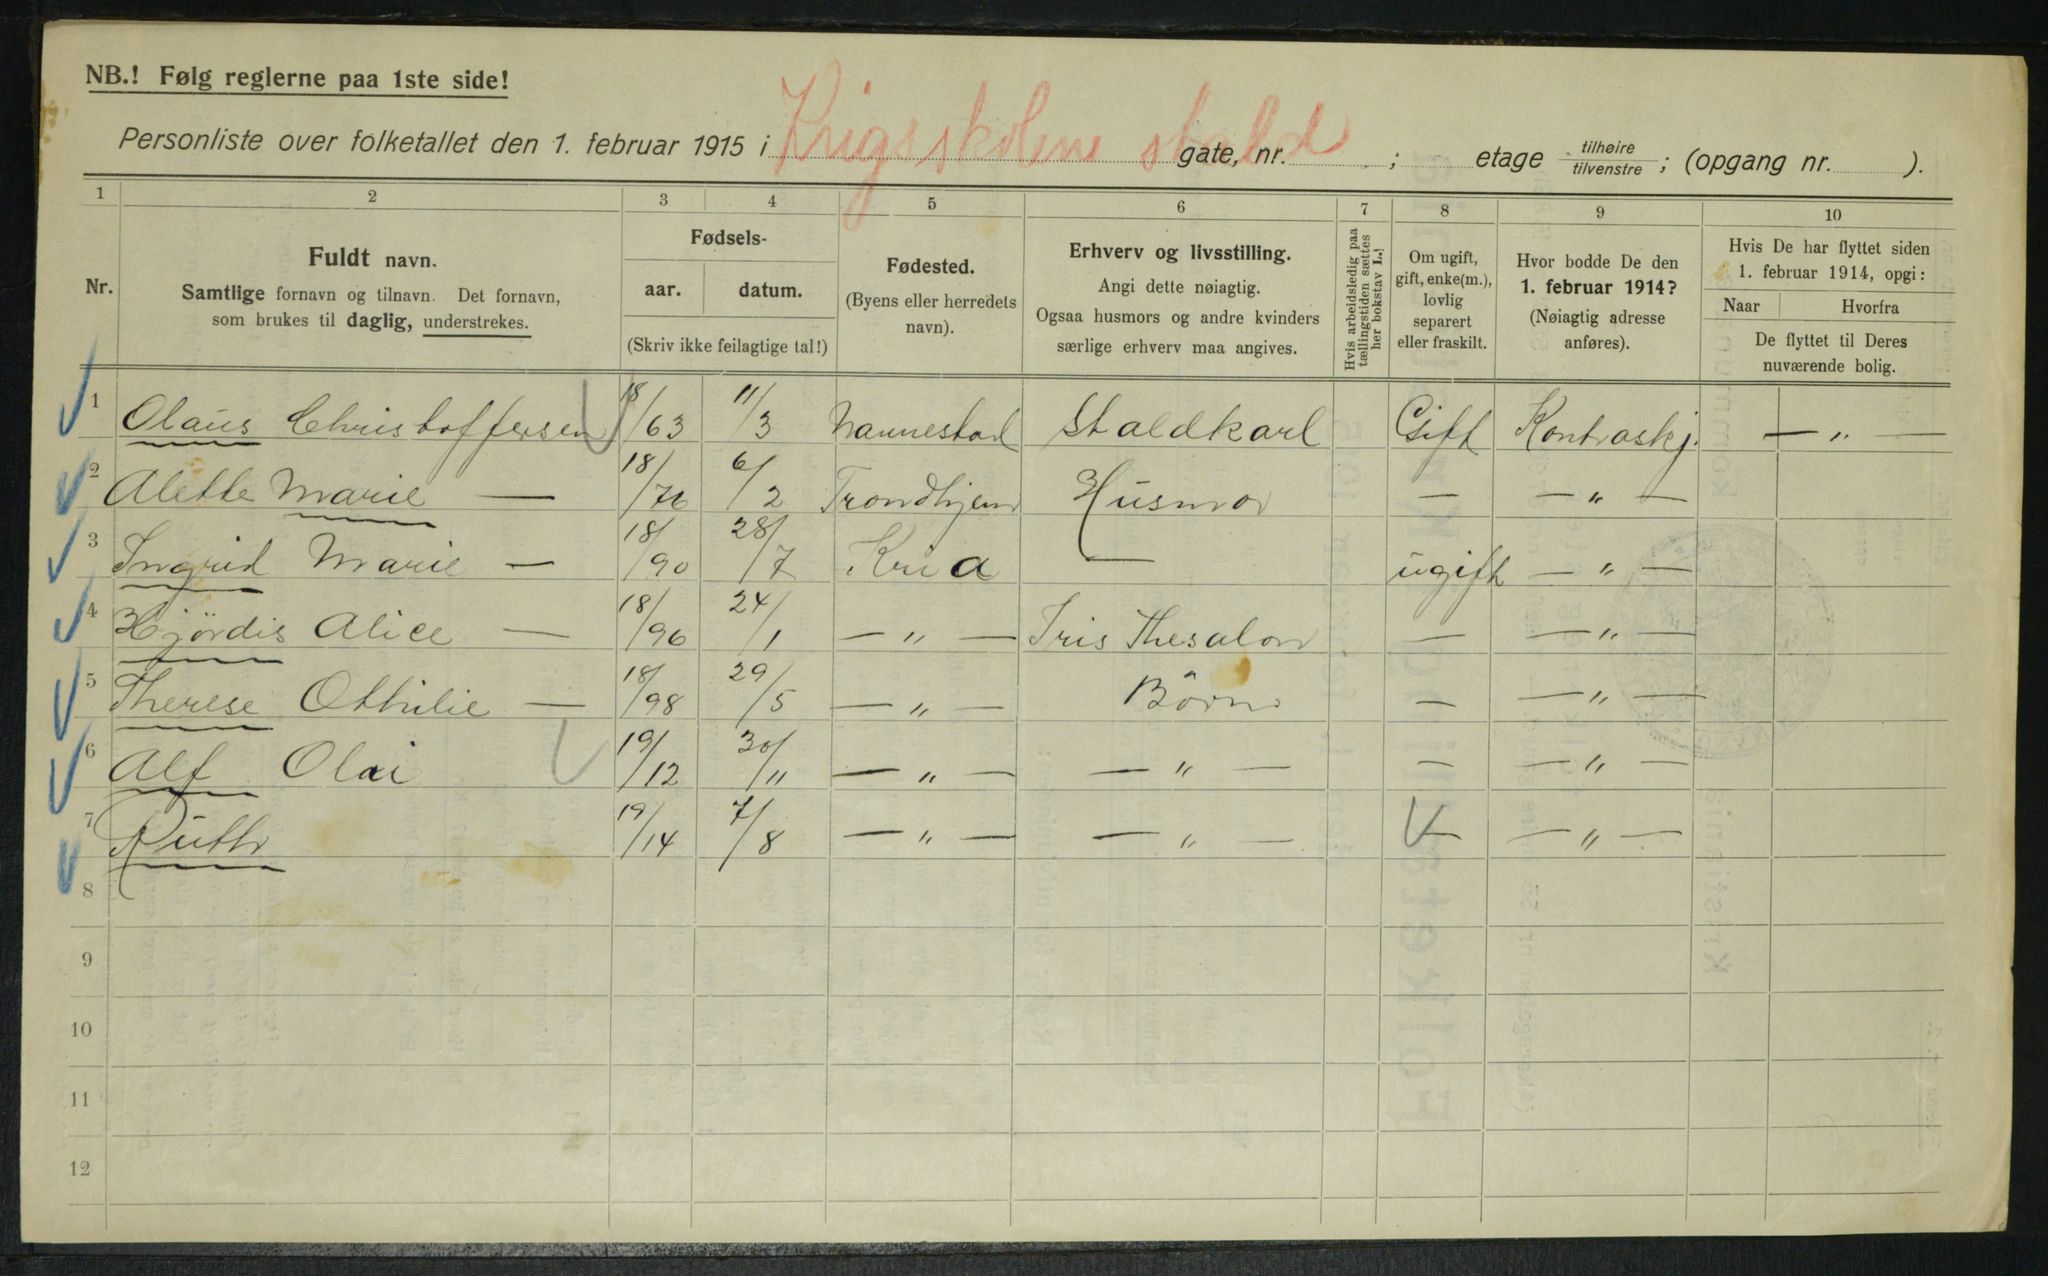 NB.! Følg reglerne paa 1ste side!
Personliste over folketallet den 1. februar 1915 i Krigsskolens stald gate, nr. ; etage tilhøire / tilvenstre ; (opgang nr. ).
1 2 3 4 5 6 7 8 9 10
Nr.
Fuldt navn.
Samtlige fornavn og tilnavn. Det fornavn,
som brukes til daglig, understrekes.
Fødsels-
aar. datum.
(Skriv ikke feilagtige tal!)
Fødested.
(Byens eller herredets
navn).
Erhverv og livsstilling.
Angi dette nøiagtig.
Ogsaa husmors og andre kvinders
særlige erhverv maa angives.
Hvis arbeidsledig paa
tællingstiden sættes
her bokstav L.!
Om ugift,
gift, enke(m.),
lovlig
separert
eller fraskilt.
Hvor bodde De den
1. februar 1914?
(Nøiagtig adresse
anføres).
Hvis De har flyttet siden
1. februar 1914, opgi:
Naar Hvorfra
De flyttet til Deres
nuværende bolig.
1 Olaus Christoffersen 18/63 11/3 Nannestad Staldkarl Gift Kontraskj. — „ —
2 Alette Marie — 18/76 6/2 Trondhjem Husmor — — „ —
3 Ingrid Marie — 18/90 28/7 Kria — ugift — „ —
4 Hjördis Alice — 18/96 24/1 — „ — Iris Thesalon — — „ —
5 Therese Othilie — 18/98 29/5 — „ — Börn — — „ —
6 Alf Olai 19/12 30/11 — „ — — „ — — — „ —
7 Ruth 19/14 7/8 — „ — — „ — — — „ —
8
9
10
11
12